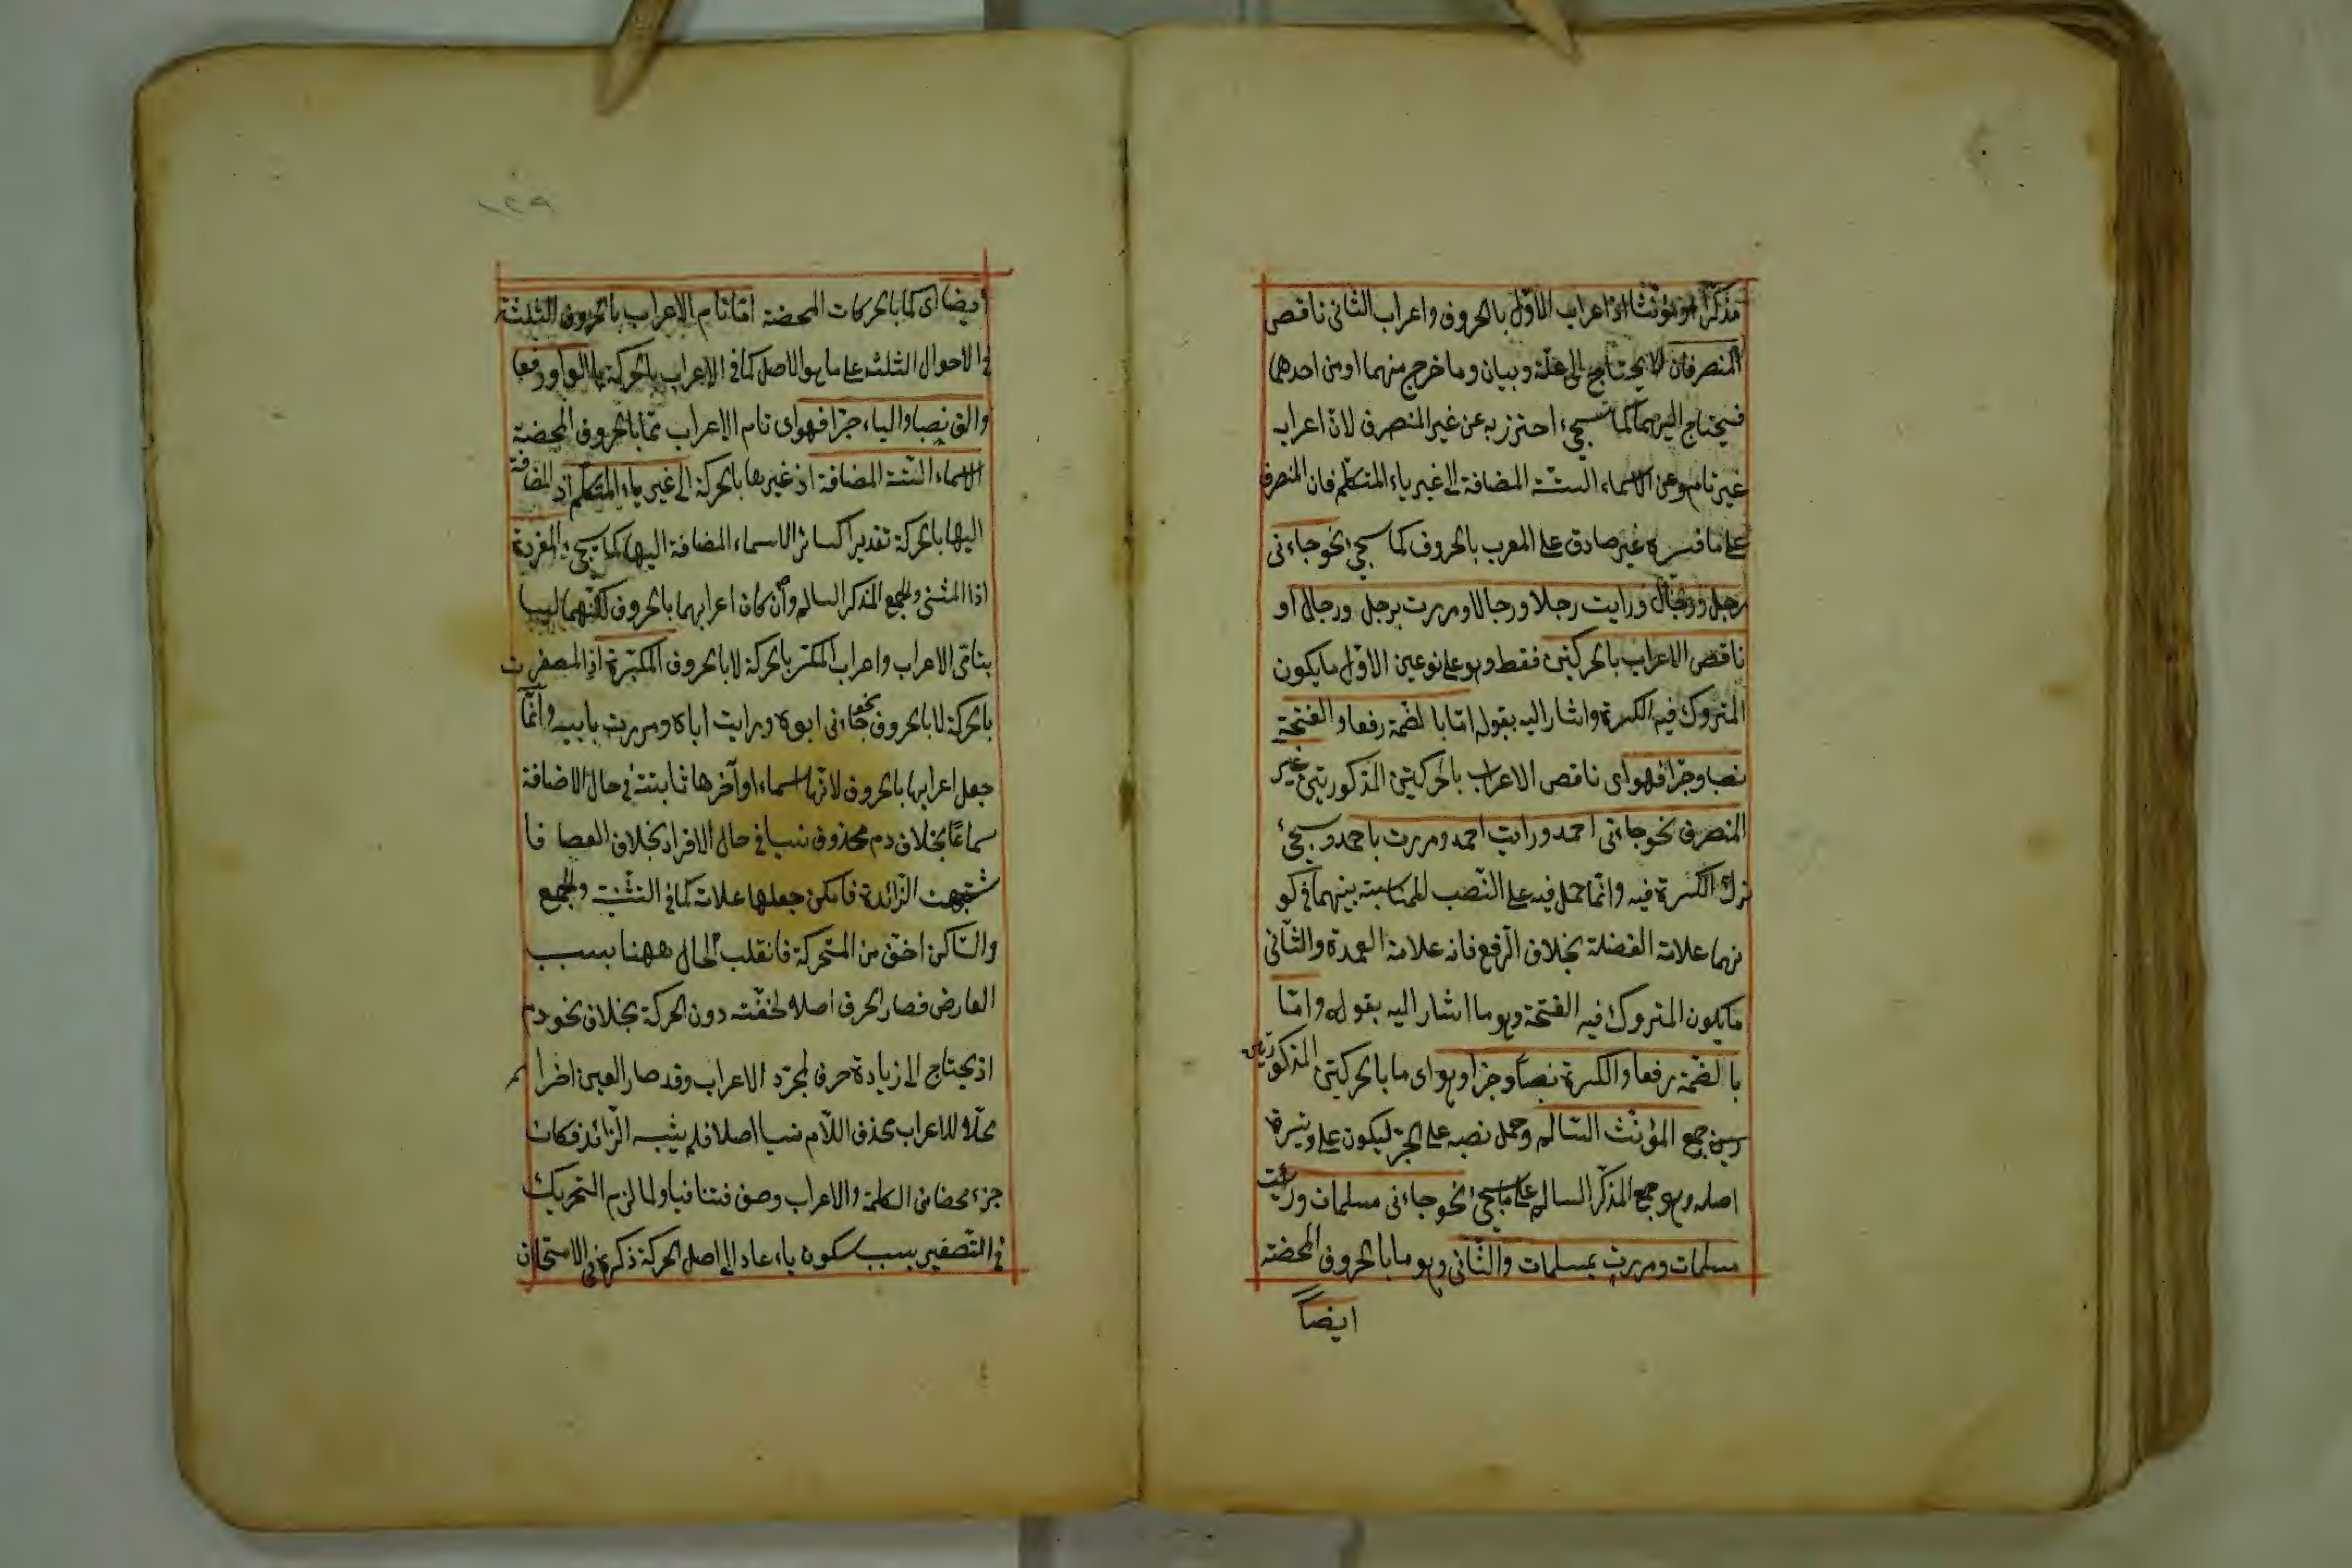 مذكرا او مؤنثا اذ اعراب الاوّل بالحروف واعراب الثانى ناقص
المنصرفان لا يحتاج الى علّة وبيان وما خرج منهما او من احدهما
فيحتاج اليهما كما سيجئ احترز به عن غير المنصرف لانّ اعرابه
غير تام وعن الاسماء الستّة المضافة الى غير ياء المتكلّم فان المنصرف
على ما فسره غير صادق على المعرب بالحروف كما سيجئ نحو جاءنى
رجل ورجال ورايت رجلا ورجالا ومررت برجل ورجال او
ناقص الاعراب بالحركتين فقط وهو على نوعين الاوّل ما يكون
المتروك فيه الكسرة واشار اليه بقوله امّا بالضّمة رفعا والفتحة
نصبا وجرّا فهو اى ناقص الاعراب بالحركتين المذكورتين غير
المنصرف نحو جاءنى احمد ورايت احمد ومررت باحمد وسيجئ
ترك الكسرة فيه وانّما حمل فيه على النّصب للمناسبة بينهما فى كو
نهما علامة الفضلة بخلاف الرّفع فانه علامة العمدة والثّانى
ما يكون المتروك فيه الفتحة وهو ما اشار اليه بقوله وامّا
بالضّمّة رفعا والكسرة نصبا وجرّا وهو اى ما بالحركتين المذكورتين
جمع المؤنّث السّالم وحمل نصبه على الجرّ ليكون على وتيرة
اصله وهو جمع المذكّر السالم على ما سيجئ نحو جاءنى مسلمات ورايت
مسلمات ومررت بمسلمات والثّانى وهو ما بالحروف المحضة
ايضاً
ايضا اى كما بالحركات المحضة امّا تام الاعراب بالحروف الثلثة
فى الاحوال الثلثة على ما هو الاصل كما فى الاعراب بالحركة بالواو رفعا
والف نصبا والياء جرّا فهو اى تام الاعراب بالحروف المحضة
الاسماء الستّة المضافة اذ غيرها بالحركة الى غير ياء المتكلّم اذ المضافة
اليها بالحركة تقديرا كسائر الاسماء المضافة اليها كما سيجئ المفردة
اذا المثنى والجمع المذكر السالم وان كان اعرابهما بالحروف لكنّهما ليسا
بتامّى الاعراب واعراب المكسّر بالحركة لا بالحروف المكبّرة اذ المصغرت
بالحركة لا بالحروف نحو جاءنى ابوه ورايت اباه ومررت بابيه وانّما
جعل اعرابها بالحروف لانّها اسماء اوآخرها ثابتة فى حال الاضافة
سماعًا بخلاف دم محذوف نسيا فى حال الافراد بخلاف العصا فا
شتبهت الزّائدة فامكن جعلها علامة كما فى التثنية والجمع
والسّاكن اخفّ من المتحركة فانقلب الحال ههنا بسبب
العارض فصار الحرف اصلا لخفّته دون الحركة بخلاف نحو دم
اذ يحتاج الى زيادة حرف لمجرّد الاعراب وقد صار العين اخرا
محلّا للاعراب بحذف اللّام نسيا اصلا فلم يشبه الزّائد فكان
جزء محضا من الكلمة والاعراب وصف فتنافيا ولما لزم التحريك
فى التّصغير بسبب سكون ياء عاد الى اصل الحركة ذكره فى الامتحان